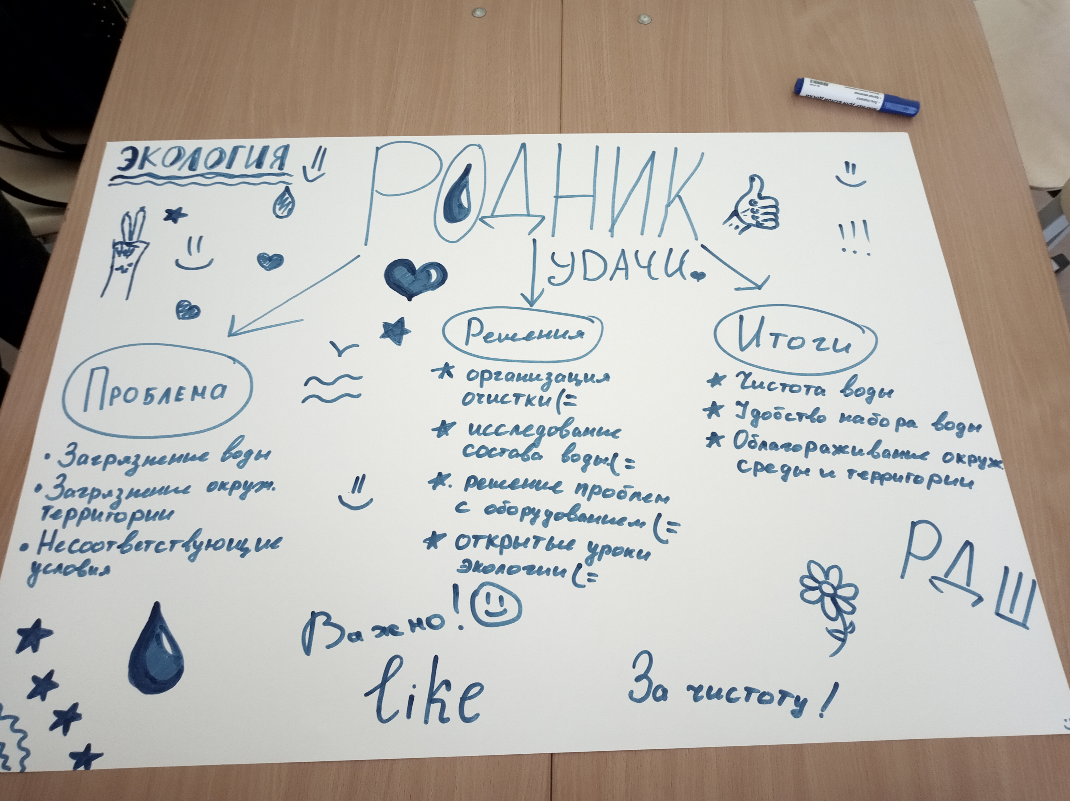 ЭКОЛОГИЯ
РОДНИК
УДАЧИ
Проблема
• Загрязнение воды
• Загрязнение окруж.
территории
• Несоответствующие
условия
Решения
* организация
очистки(=
* исследование
состава воды(=
*. решение проблем
с оборудованием(=
* открытые уроки
экологии(=
Итоги
* Чистота воды
* Удобство набора воды
* Облагораживание окруж
среды и территории
!!!
РДШ
Важно!
like
За чистоту!